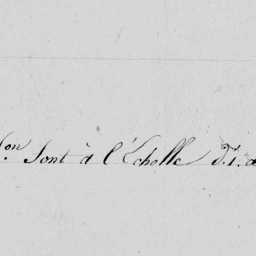 on sont à l'Echelle d. 1. a